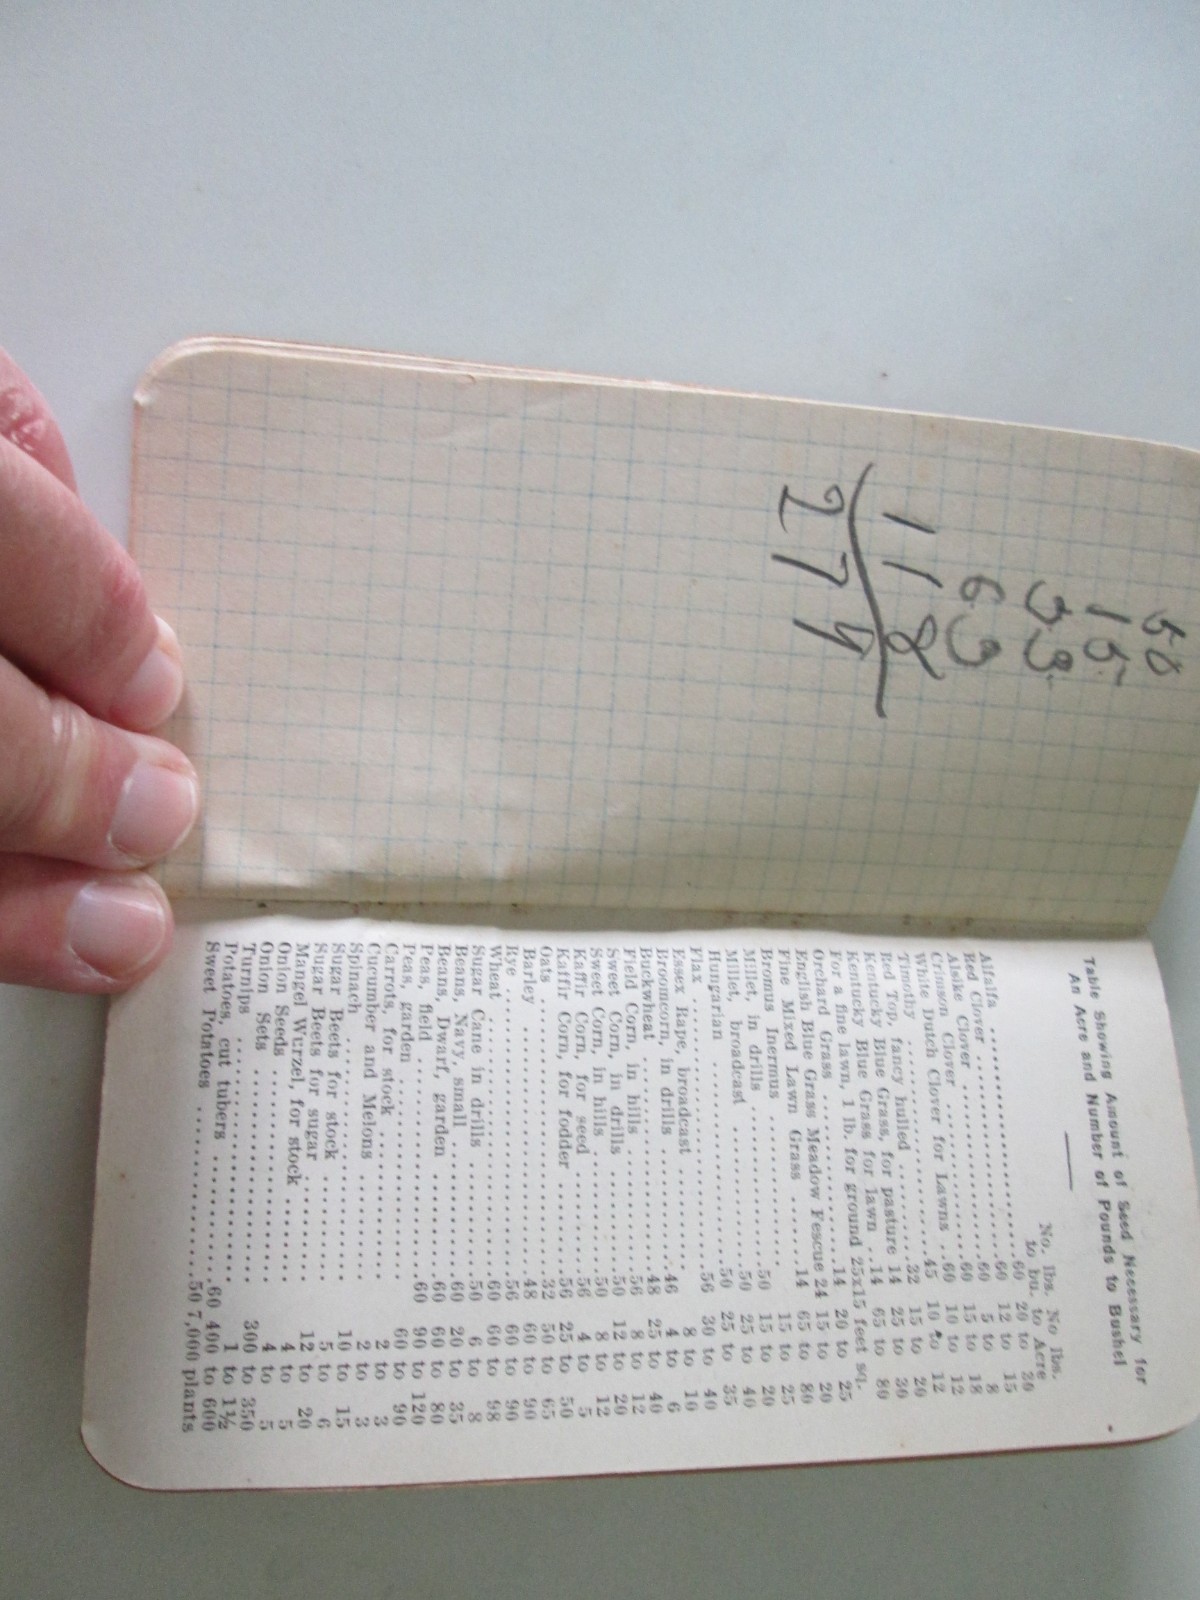 50
15
33
63
118
274
Table Showing Amount of Seed Necessary for
An Acre and Number of Pounds to Bushel
No. lbs. No lbs.
to bu. to Acre
Alfalfa ..........60 20 to 30
Red Clover ..........60 12 to 15
Alsike Clover ..........60 5 to 8
Crimson Clover ..........60 15 to 18
White Dutch Clover for Lawns ..60 10 to 12
Timothy ..........45 10 to 12
Red Top, fancy hulled ..........32 15 to 20
Kentucky Blue Grass, for pasture 14 25 to 30
Kentucky Blue Grass for lawn ..14 65 to 80
For a fine lawn, 1 lb. for ground 25x15 feet sq.
Orchard Grass ..........14 20 to 25
English Blue Grass Meadow Fescue 24 15 to 20
Fine Mixed Lawn Grass ......14 65 to 80
Bromus Inermus .......... 15 to 25
Millet, in drills ..........50 15 to 20
Millet, broadcast ..........50 25 to 40
Hungarian ..........50 25 to 35
Flax ..........56 30 to 40
Essex Rape, broadcast .......... 8 to 10
Broomcorn, in drills ..........46 4 to 6
Buckwheat ..........48 25 to 40
Field Corn, in hills ..........56 8 to 12
Sweet Corn, in drills ..........50 12 to 20
Sweet Corn, in hills ..........50 8 to 12
Kaffir Corn, for seed ..........56 4 to 5
Kaffir Corn, for fodder ..........56 25 to 50
Oats ..........32 50 to 65
Barley ..........48 60 to 90
Rye ..........56 60 to 90
Wheat ..........60 60 to 98
Sugar Cane in drills ..........50 6 to 8
Beans, Navy, small ..........60 20 to 35
Beans, Dwarf, garden ..........60 60 to 80
Peas, field ..........60 90 to 120
Peas, garden .......... 60 to 90
Carrots, for stock .......... 2 to 3
Cucumber and Melons .......... 2 to 3
Spinach .......... 10 to 15
Sugar Beets for stock .......... 5 to 6
Sugar Beets for sugar .......... 12 to 20
Mangel Wurzel, for stock .......... 4 to 5
Onion Seeds .......... 4 to 5
Onion Sets .......... 300 to 350
Turnips .......... 1 to 1½
Potatoes, cut tubers ..........60 400 to 600
Sweet Potatoes ..........50 7,000 plants